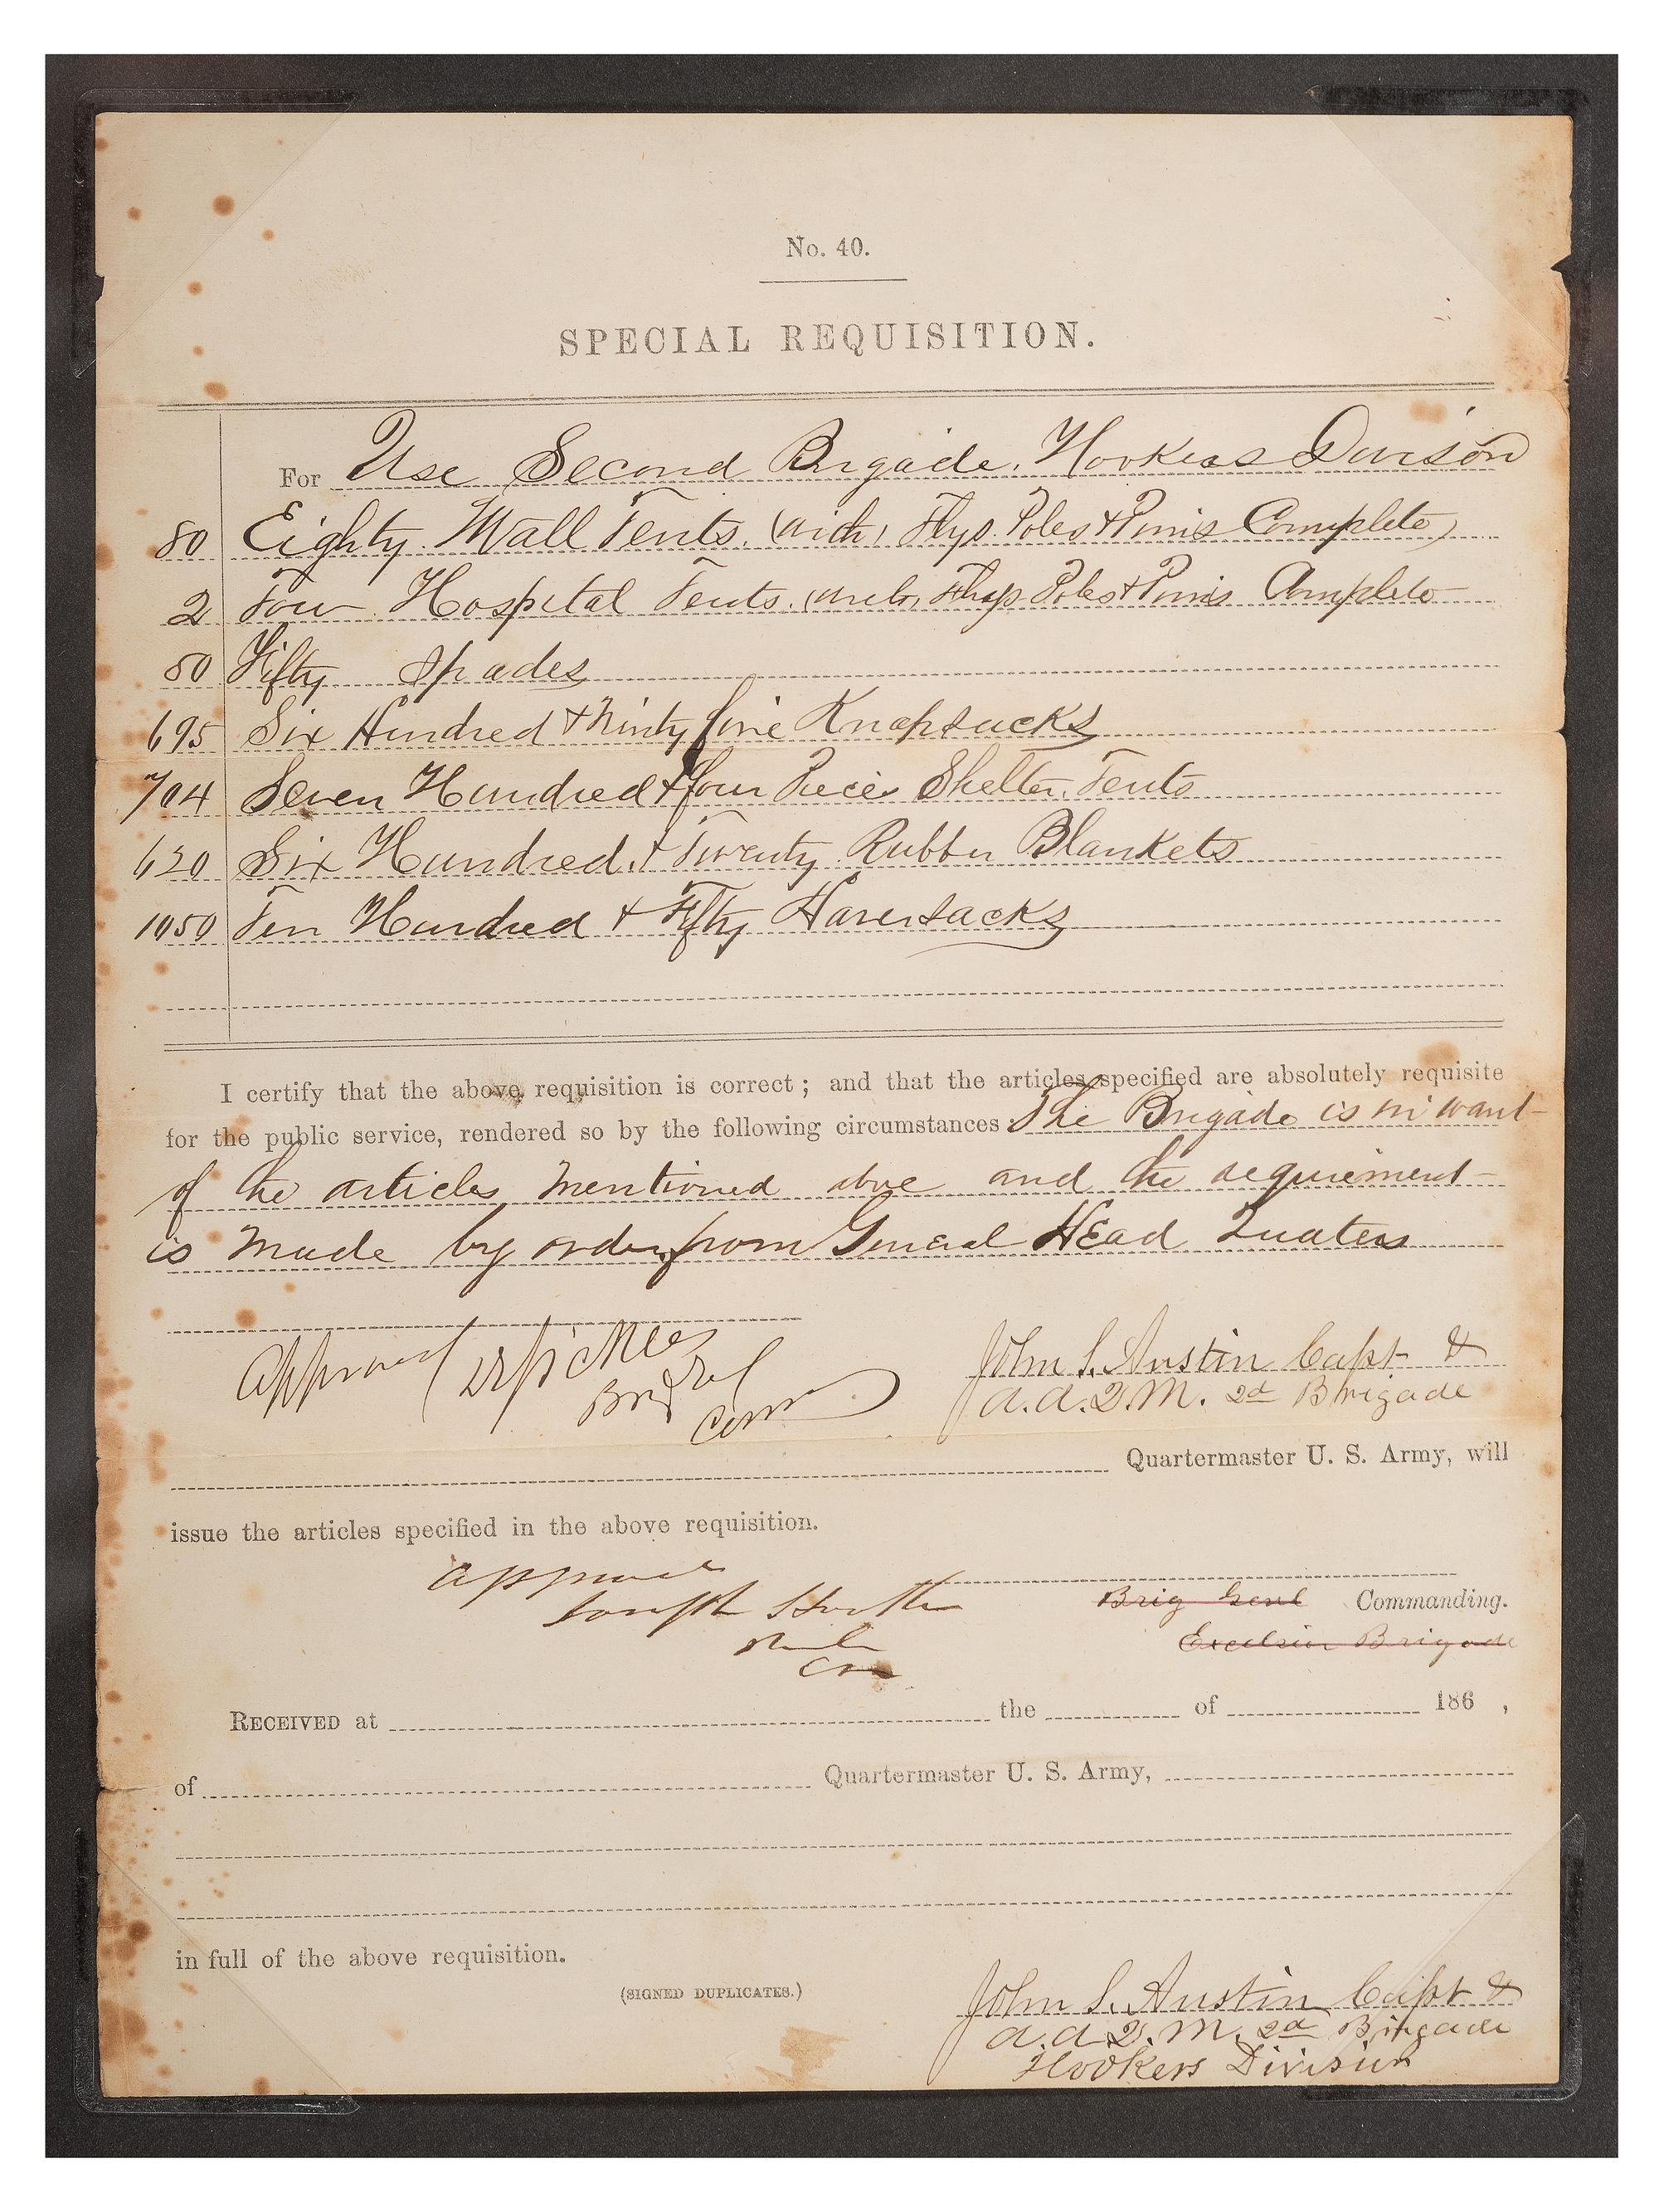 No. 40.
SPECIAL REQUISITION.
For Use Second Brigade. Hookers Divison
80 Eighty Wall Tents. (with) Flys. Poles & Pinis Complete)
2 Four Hospital Tents. (with, Flys Poles & Pinis Complete
50 Fifty Spades
695 Six Hundred & Ninty five Knapsacks
704 Seven Hundred & four Pieces Shelter Tents
620 Six Hundred & Twenty Rubber Blankets
1050 Ten Hundred & Fifty Haversacks
I certify that the above requisition is correct; and that the articles specified are absolutely requisite
for the public service, rendered so by the following circumstances The Brigade is in want
of the articles mentioned above and the requirement
is made by order from General Head Quaters
Approved D Sickles
Brig Gel
Com
John S. Austin Capt &
a. a. Q. M. 2d Brigade
Quartermaster U. S. Army, will
issue the articles specified in the above requisition.
Approved
Joseph Hooker
Brig Genl Commanding.
Excelsior Brigade
RECEIVED at the of 186 ,
of Quartermaster U. S. Army,
in full of the above requisition.
(SIGNED DUPLICATES.)
John S. Austin Capt &
a. a. Q. M. 2d Brigade
Hookers Division